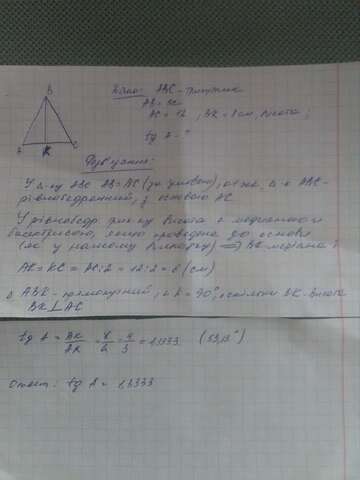 B
A K C
Дано: ABC - трикутник
AB = BC
AC = 12, BK = 8 см, висота;
tg A - ?
Розв'язання:
У Δ-ку ABC AB = BC (за умовою), отже, Δ-к ABC -
рівнобедренний, з основою AC.
У рівнобедр. трик-ку висота є медіаною і
бісектрисою, якщо проведена до основи
(як у нашому випадку) ⇒ BK - медіана і
AK = KC = AC:2 = 12:2 = 6 (см)
Δ ABK - прямокутний, ∠K = 90°, оскільки BK - висота
BK ⊥ AC
tg A = BK/AK = 8/6 = 4/3 = 1,3333 (53,13°)
Ответ: tg A = 1,3333